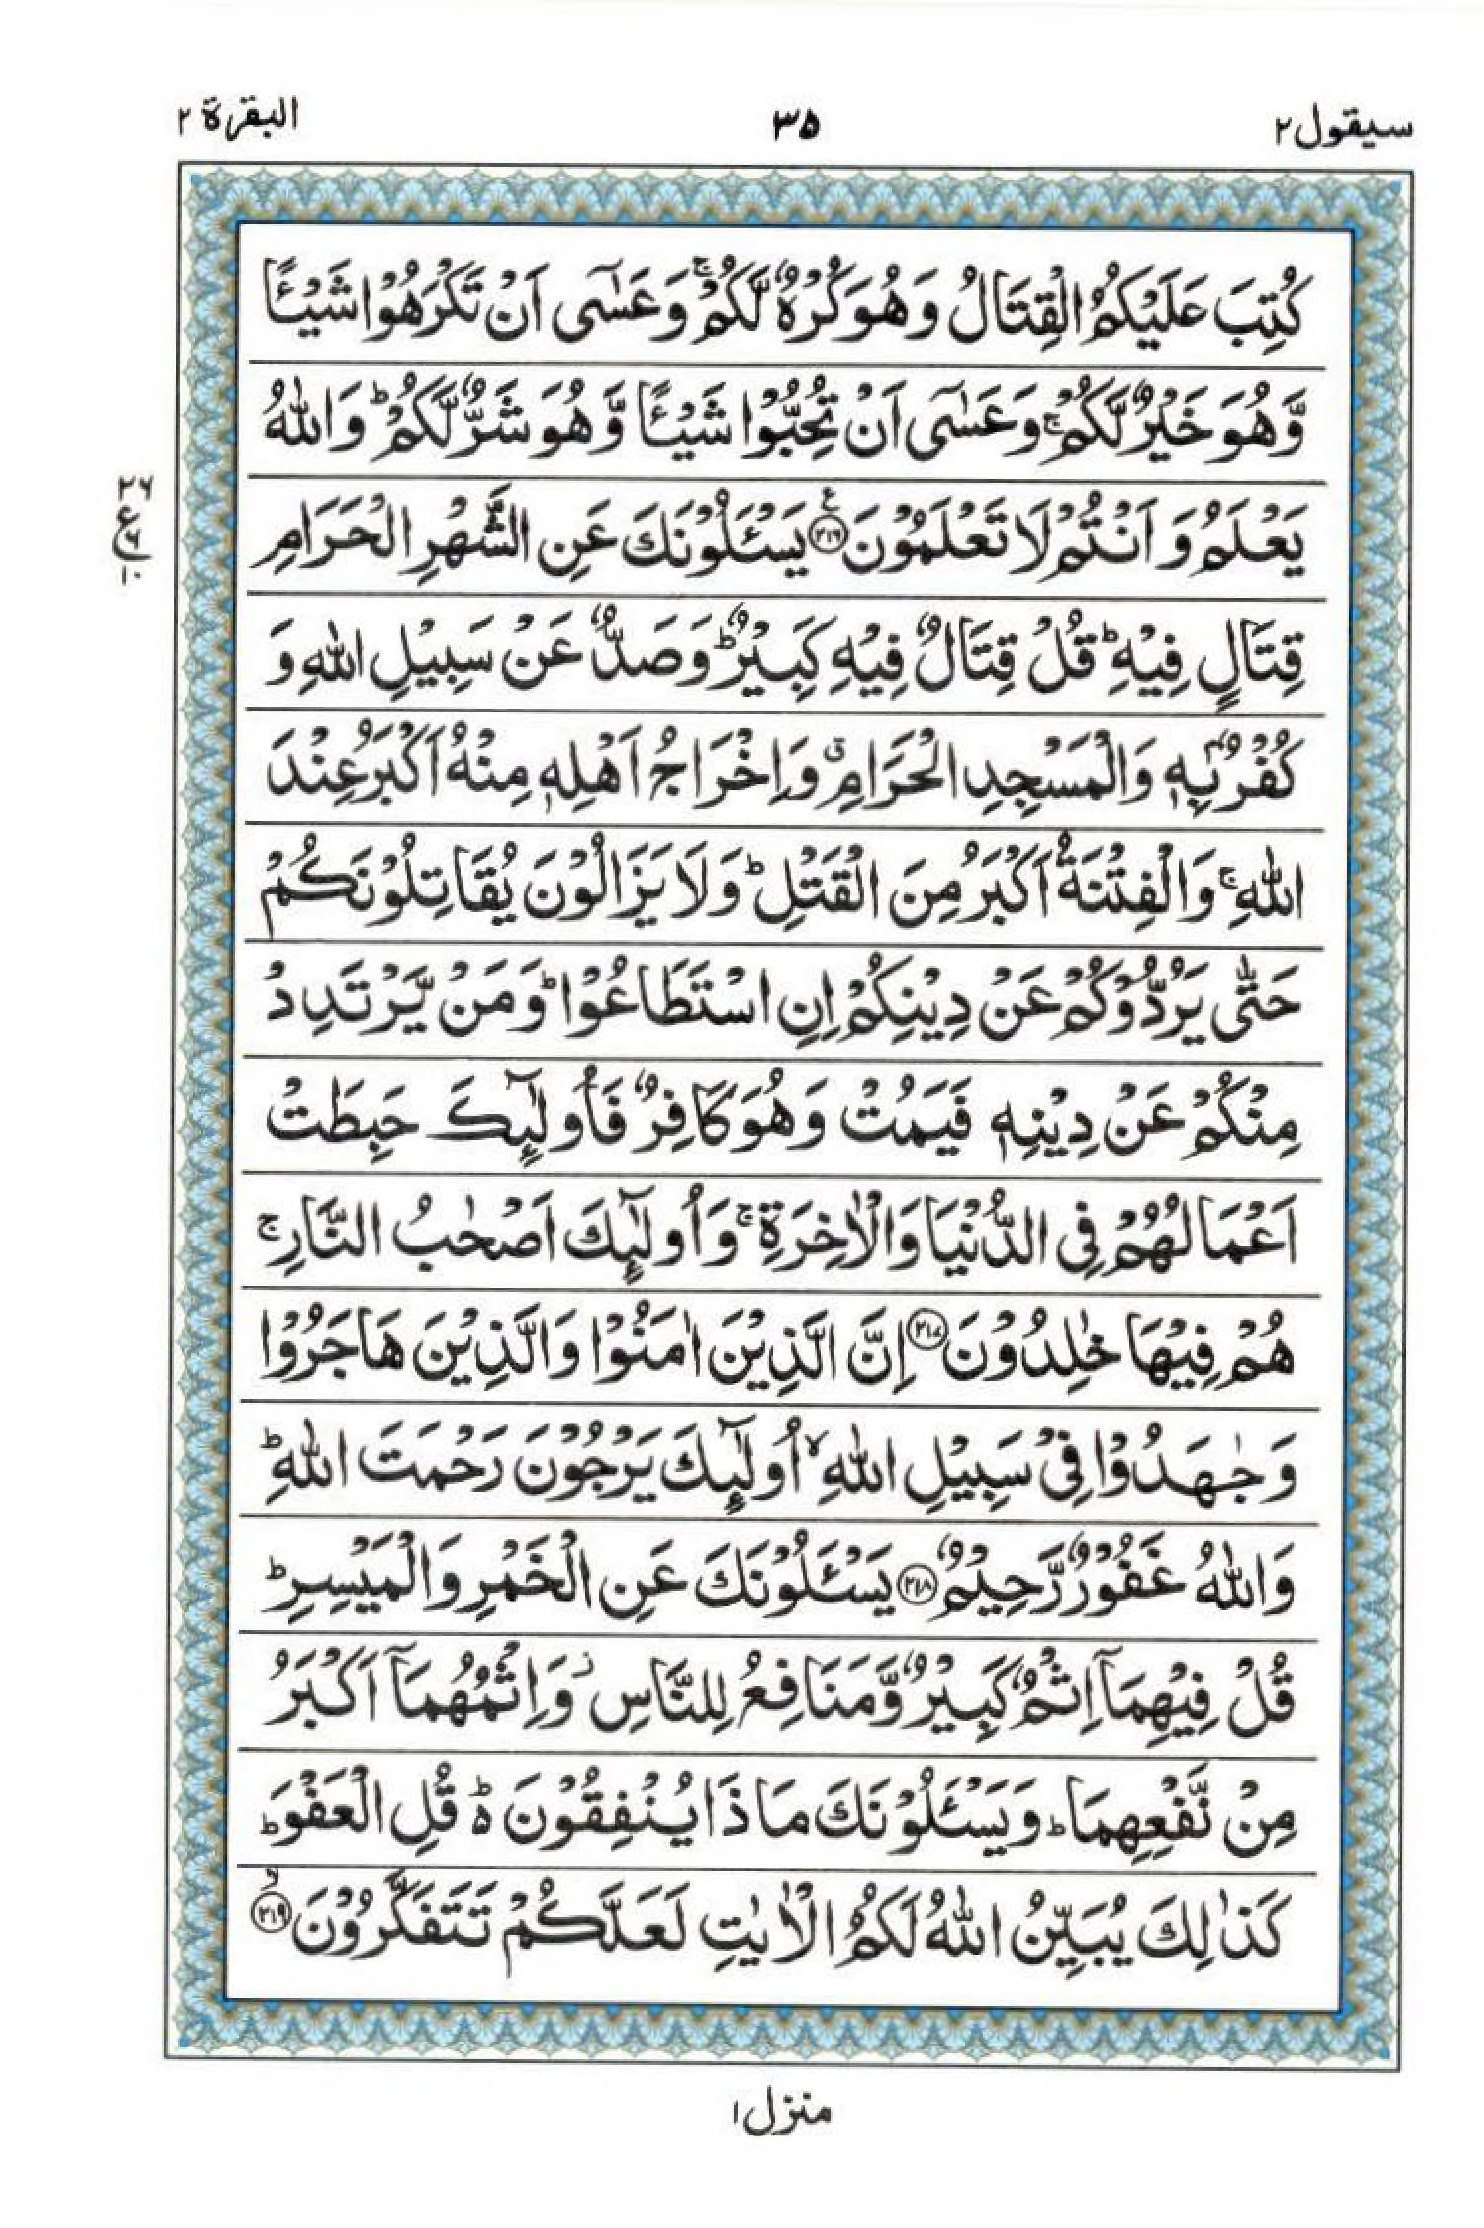 سيقول ٢
٣٥
البقرة ٢
كُتِبَ عَلَيْكُمُ الْقِتَالُ وَهُوَ كُرْهٌ لَّكُمْ ۚ وَعَسٰٓى اَنْ تَكْرَهُوْا شَيْـًٔا
وَّهُوَ خَيْرٌ لَّكُمْ ۚ وَعَسٰٓى اَنْ تُحِبُّوْا شَيْـًٔا وَّهُوَ شَرٌّ لَّكُمْ ؕ وَاللّٰهُ
يَعْلَمُ وَاَنْتُمْ لَا تَعْلَمُوْنَ ﴿٢١٦﴾ يَسْـَٔلُوْنَكَ عَنِ الشَّهْرِ الْحَرَامِ
٢٦
ع
٦
١٠
قِتَالٍ فِيْهِ ؕ قُلْ قِتَالٌ فِيْهِ كَبِيْرٌ ؕ وَصَدٌّ عَنْ سَبِيْلِ اللّٰهِ وَ
كُفْرٌۢ بِهٖ وَالْمَسْجِدِ الْحَرَامِ ۗ وَاِخْرَاجُ اَهْلِهٖ مِنْهُ اَكْبَرُ عِنْدَ
اللّٰهِ ۚ وَالْفِتْنَةُ اَكْبَرُ مِنَ الْقَتْلِ ؕ وَلَا يَزَالُوْنَ يُقَاتِلُوْنَكُمْ
حَتّٰى يَرُدُّوْكُمْ عَنْ دِيْنِكُمْ اِنِ اسْتَطَاعُوْا ؕ وَمَنْ يَّرْتَدِدْ
مِنْكُمْ عَنْ دِيْنِهٖ فَيَمُتْ وَهُوَ كَافِرٌ فَاُولٰٓئِكَ حَبِطَتْ
اَعْمَالُهُمْ فِى الدُّنْيَا وَالْاٰخِرَةِ ۚ وَاُولٰٓئِكَ اَصْحٰبُ النَّارِ ۚ
هُمْ فِيْهَا خٰلِدُوْنَ ﴿٢١٧﴾ اِنَّ الَّذِيْنَ اٰمَنُوْا وَالَّذِيْنَ هَاجَرُوْا
وَجٰهَدُوْا فِىْ سَبِيْلِ اللّٰهِ ۙ اُولٰٓئِكَ يَرْجُوْنَ رَحْمَتَ اللّٰهِ ؕ
وَاللّٰهُ غَفُوْرٌ رَّحِيْمٌ ﴿٢١٨﴾ يَسْـَٔلُوْنَكَ عَنِ الْخَمْرِ وَالْمَيْسِرِ ؕ
قُلْ فِيْهِمَآ اِثْمٌ كَبِيْرٌ وَّمَنَافِعُ لِلنَّاسِ ز وَاِثْمُهُمَآ اَكْبَرُ
مِنْ نَّفْعِهِمَا ؕ وَيَسْـَٔلُوْنَكَ مَاذَا يُنْفِقُوْنَ ؕ۬ قُلِ الْعَفْوَ ؕ
كَذٰلِكَ يُبَيِّنُ اللّٰهُ لَكُمُ الْاٰيٰتِ لَعَلَّكُمْ تَتَفَكَّرُوْنَ ۙ﴿٢١٩﴾
منزل ١